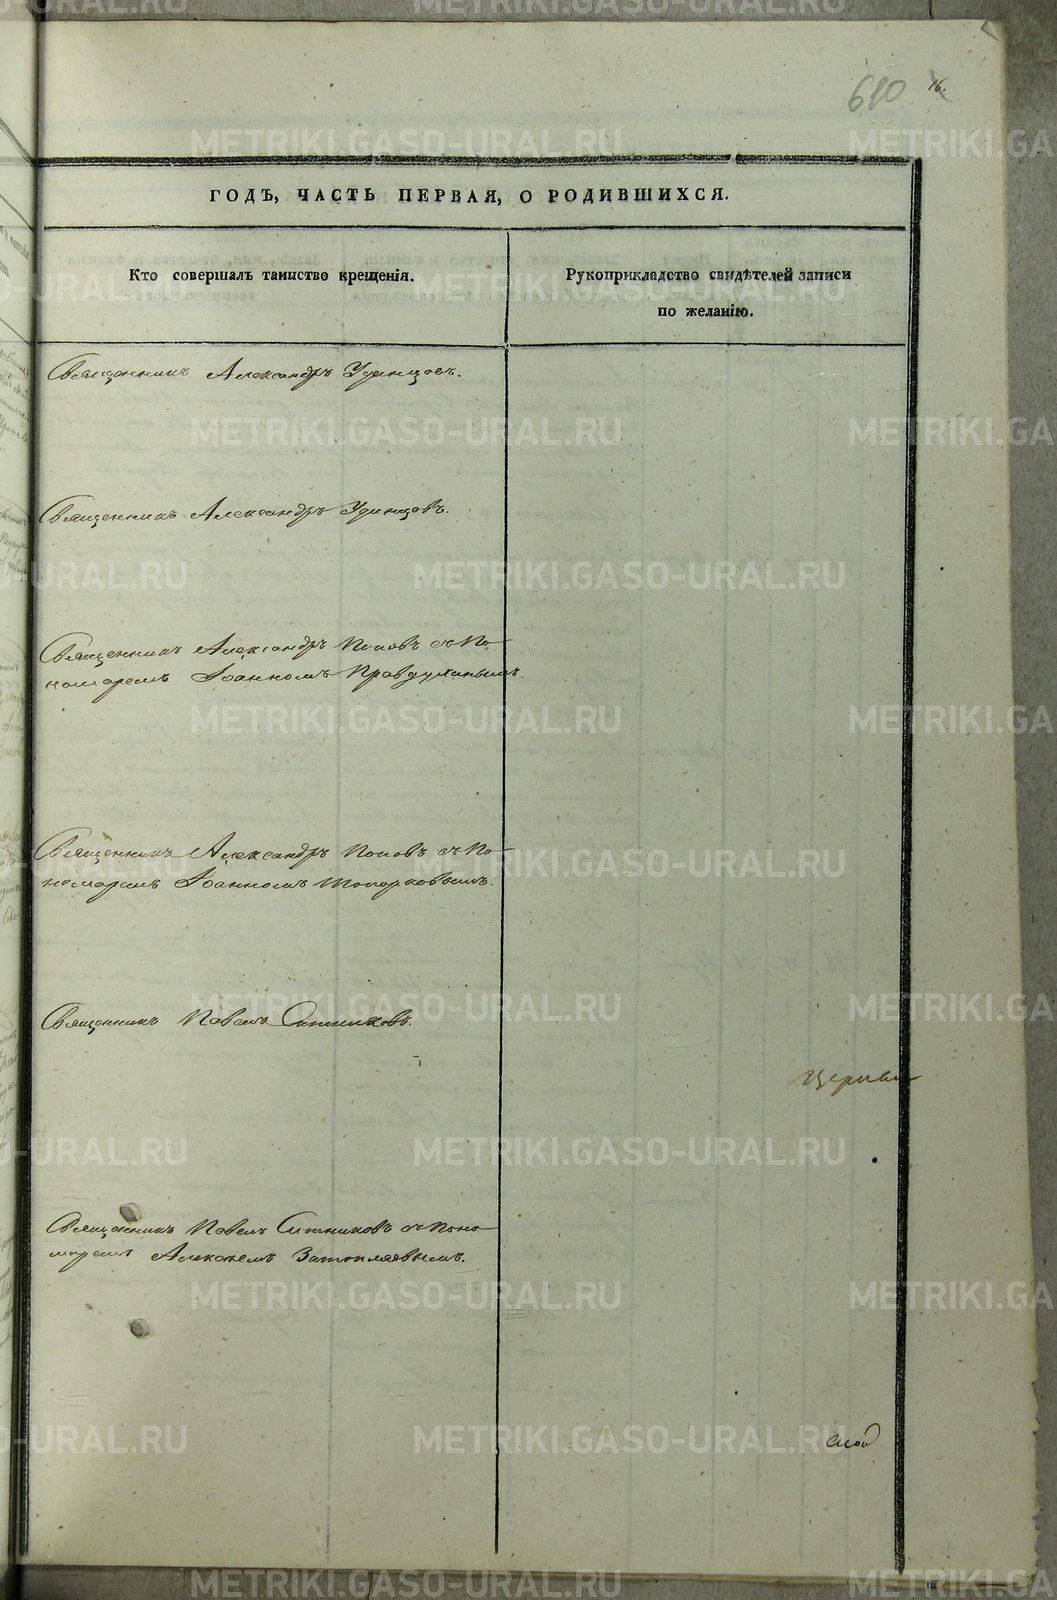 610 16.
ГОДЪ, ЧАСТЬ ПЕРВАЯ, О РОДИВШИХСЯ.
Кто совершалъ таинство крещенія.
Рукоприкладство свидѣтелей записи
по желанію.
Священникъ Александръ Удинцовъ.
Священникъ Александръ Удинцовъ.
Священникъ Александръ Поповъ съ По
номаремъ Іоанномъ Правдухинымъ.
Священникъ Александръ Поповъ съ По
номаремъ Іоанномъ Топорковымъ.
Священникъ Павелъ Ситниковъ.
Церкви
Священникъ Павелъ Ситниковъ съ Поно
маремъ Алексѣемъ
METRIKI.GASO-URAL.RU